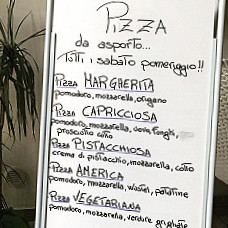 PIZZA
da asporto...
Tutti i sabato pomeriggio!!
Pizza MARGHERITA
pomodoro, mozzarella, origano
Pizza CAPRICCIOSA
pomodoro, mozzarella, uova, funghi,
prosciutto cotto
Pizza PISTACCHIOSA
crema di pistacchio, mozzarella, cotto
Pizza AMERICA
pomodoro, mozzarella, wustel, patatine
Pizza VEGETARIANA
pomodoro, mozzarella, verdure grigliate